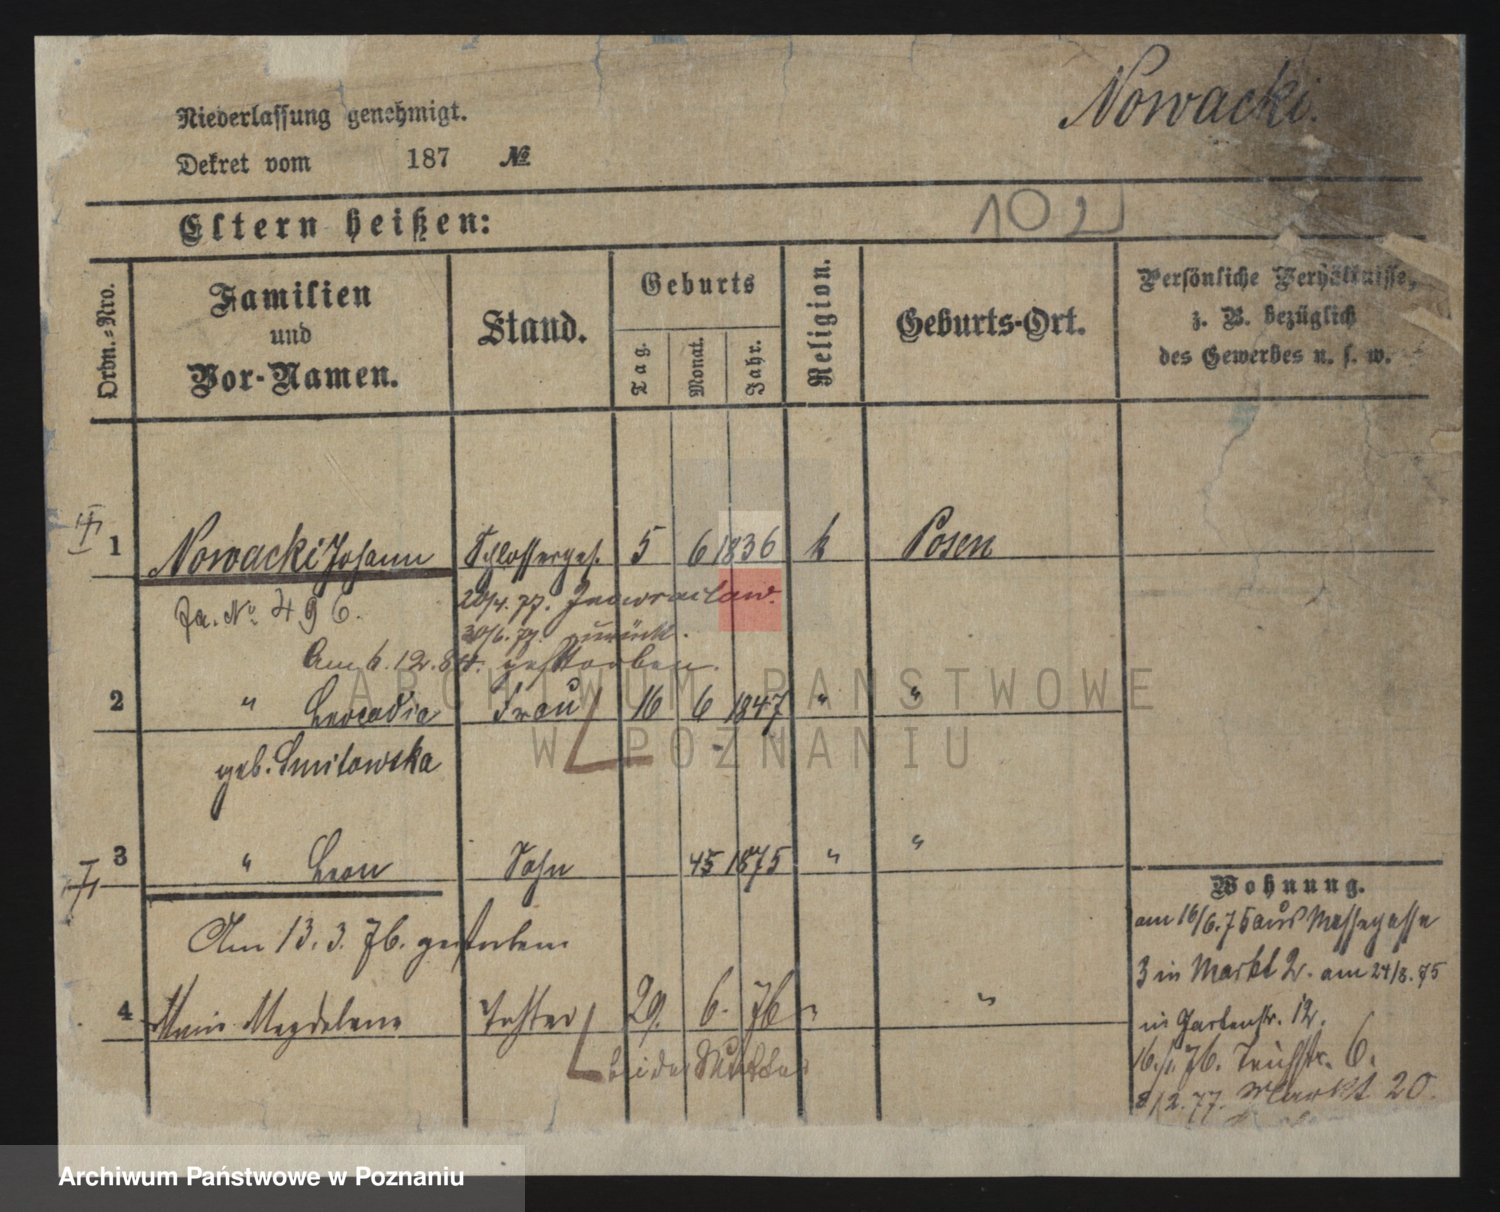 Nowacki.
Niederlassung genehmigt.
Dekret vom 187 №
Eltern heißen:
102
Ordn.-Nro.
Familien
und
Vor-Namen.
Stand.
Geburts
Tag.
Monat.
Jahr.
Religion.
Geburts-Ort.
Persönliche Verhältnisse,
z. B. bezüglich
des Gewerbes u. s. w.
1 Nowacki Johann Schlosserges. 5 6 1836 k Posen
Fa. № 496.
20/4. 77. Inowraclaw.
30/6. 77. zurück.
Am 6. 12. 84. gestorben.
2 " Leocadia Frau 16 6 1847 " "
geb. Smitowska
3 " Leon Sohn 45 1875 " "
Am 13. 3. 76. gestorben
4 Magdalena Tochter 29. 6. 76 " "
bei der Mutter
Wohnung.
am 16/6. 75 aus
3 in Markt 2. am 24/8. 75
in Gartenstr. 12.
16. 76. Teichstr. 6.
8/2. 77. Markt 20.
ARCHIWUM PAŃSTWOWE
W POZNANIU
Archiwum Państwowe w Poznaniu